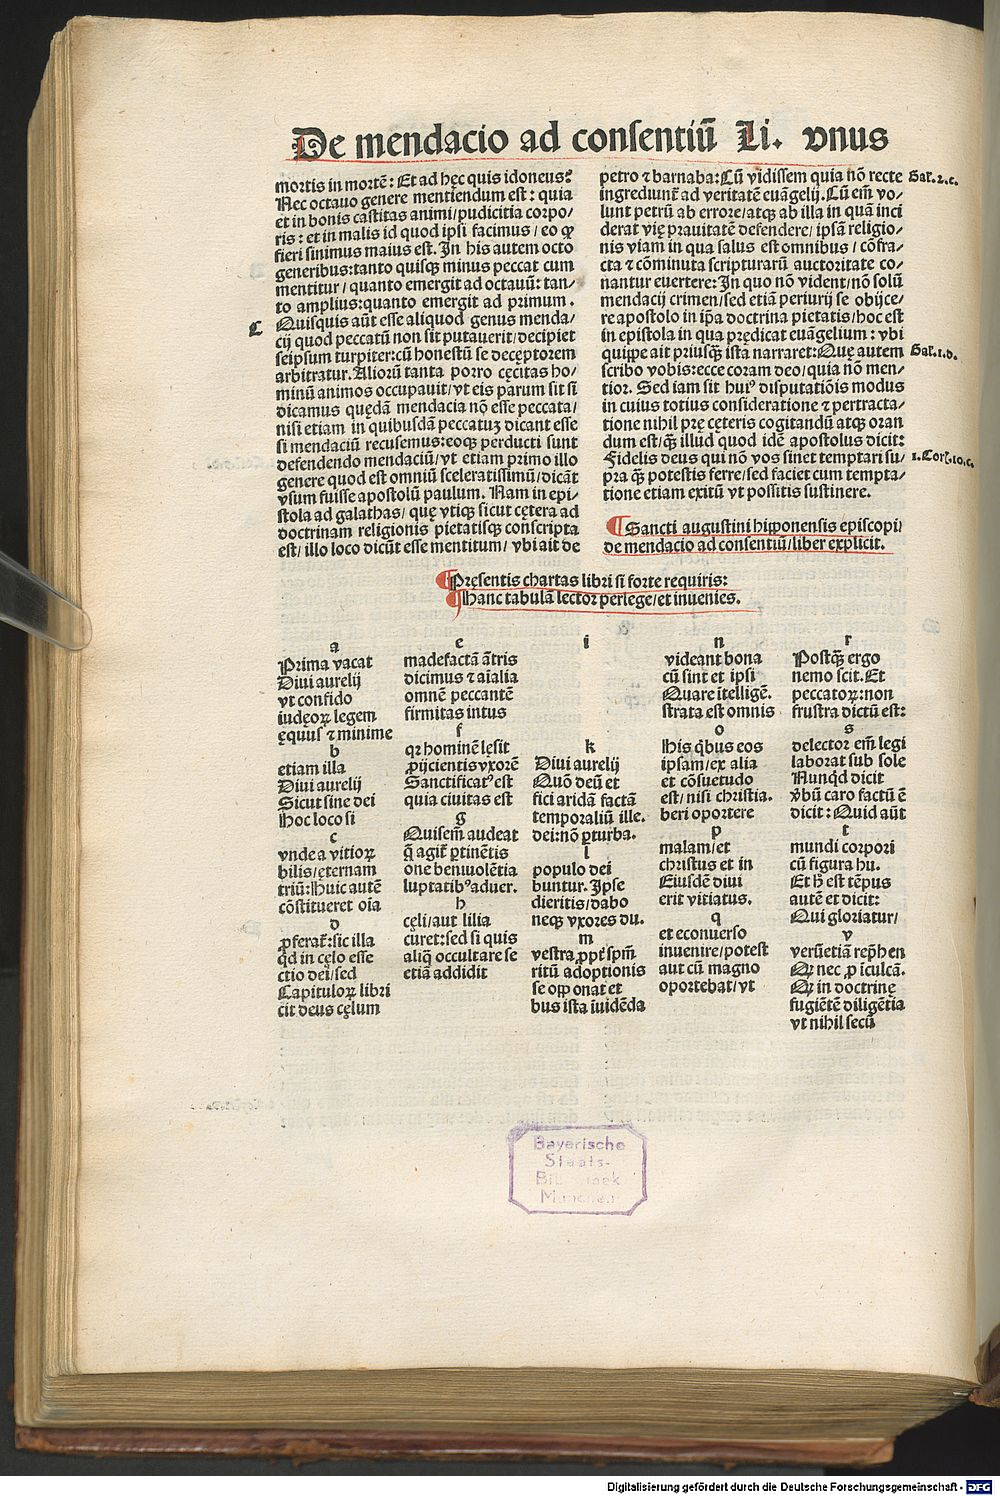 De mendacio ad consentiū Li. vnus
mortis in mortē: Et ad hęc quis idoneus?
Nec octauo genere mentiendum est: quia
et in bonis castitas animi/pudicitia corpo/
ris: et in malis id quod ipsi facimus/ eo qp
fieri sinimus maius est. In his autem octo
generibus:tanto quisq minus peccat cum
mentitur/ quanto emergit ad octauū: tan/
to amplius:quanto emergit ad primum.
C Quisquis aūt esse aliquod genus menda/
cij quod peccatū non sit putauerit/decipiet
seipsum turpiter:cū honestū se deceptorem
arbitratur. Aliorū tanta porro cęcitas ho/
minū animos occupauit/vt eis parum sit si
dicamus quędā mendacia nō esse peccata/
nisi etiam in quibusdā peccatuꝫ dicant esse
si mendaciū recusemus:eoq perducti sunt
defendendo mendaciū/vt etiam primo illo
genere quod est omniū sceleratissimū/dicāt
vsum fuisse apostolū paulum. Nam in epi/
stola ad galathas/ quę vtiq sicut cętera ad
doctrinam religionis pietatisq conscripta
est/ illo loco dicūt esse mentitum/ vbi ait de
petro ⁊ barnaba: Cū vidissem quia nō recte Gal.2.c.
ingrediunt̄ ad veritatē euāgelij. Cū em̄ vo/
lunt petrū ab errore/atq ab illa in quā inci
derat vię prauitatē defendere/ ipsā religio/
nis viam in qua salus est omnibus/ cōfra/
cta ⁊ cōminuta scripturarū auctoritate co/
nantur euertere: In quo nō vident/nō solū
mendacij crimen/sed etiā periurij se obijce/
re apostolo in ip̄a doctrina pietatis/hoc est
in epistola in qua prędicat euāgelium: vbi
quippe ait priusq̄ ista narraret:Quę autem Gal.1.d.
scribo vobis:ecce coram deo/quia nō men/
tior. Sed iam sit huiꝰ disputatiōis modus
in cuius totius consideratione ⁊ pertracta/
tione nihil pre ceteris cogitandū atq oran
dum est/q̄ illud quod idē apostolus dicit:
Fidelis deus qui nō vos sinet temptari su/ 1.Cor.10.c.
pra q̄ potestis ferre/sed faciet cum tempta/
tione etiam exitū vt possitis sustinere.
¶ Sancti augustini hipponensis episcopi
de mendacio ad consentiū/liber explicit.
¶ Pręsentis chartas libri si forte requiris:
¶ Hanc tabulā lector perlege/et inuenies.
a
Prima vacat
Diui aurelij
vt confido
iudęoꝝ legem
ęquus ⁊ minime
b
etiam illa
Diui aurelij
Sicut sine dei
Hoc loco si
c
vnde a vitioꝝ
bilis/ęternam
triū: Huic autē
cōstitueret oīa
d
ꝓferat̄: sic illa
qd in cęlo esse
ctio dei/sed
Capituloꝝ libri
cit deus cęlum
e
madefactā ātris
dicimus ⁊ aīalia
omnē peccantē
firmitas intus
f
qꝛ hominē lęsit
ꝓijcientis vxorē
Sanctificatꝰ est
quia ciuitas est
g
Quisem̄ audeat
q̄ agit̄ ꝑtinētis
one beniuolētia
luptatibꝰ aduer.
h
cęli/aut lilia
curet:sed si quis
aliq occultare se
etiā addidit
i
k
Diui aurelij
Quō deū et
fici aridā factā
temporaliū ille.
dei:nō ꝑturba.
l
populo dei
buntur. Ipse
dieritis/dabo
neq vxores du.
m
vestra ꝓpt̄ sp̄m
ritū adoptionis
se opponat et
bus ista iuidēda
n
videant bona
cū sint et ipsi
Quare ītelligē.
strata est omnis
o
His qbus eos
ipsam/ex alia
et cōsuetudo
est/ nisi christia.
beri oportere
p
malam/et
christus et in
Eiusdē diui
erit vitiatus.
q
et econuerso
inuenire/potest
aut cū magno
oportebat/vt
r
Postq̄ ergo
nemo scit. Et
peccatoꝝ:non
frustra dictū est:
s
delector em̄ legi
laborat sub sole
Nunqd dicit
vbū caro factū ē
dicit: Quid aūt
t
mundi corpori
cū figura hu.
Et h̄ est tēpus
autē et dicit:
Qui gloriatur/
v
verūetiā rep̄hen
Qꝛ nec ꝓ īculcā.
Qꝛ in doctrinę
fugiētē diligētia
vt nihil secū
Bayerische
Staats-
Bibliothek
München
Digitalisierung gefördert durch die Deutsche Forschungsgemeinschaft - DFG